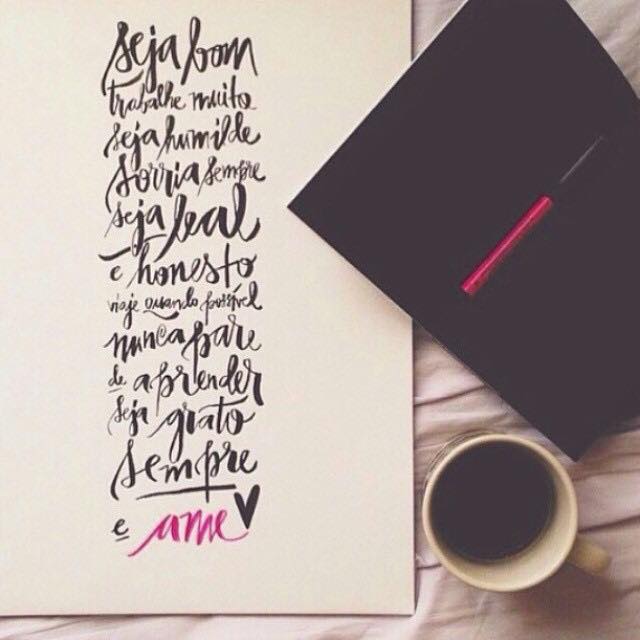 seja bom
trabalhe muito
seja humilde
sorria sempre
seja leal
e honesto
viaje quando possível
nunca pare
de aprender
seja grato
sempre
e ame